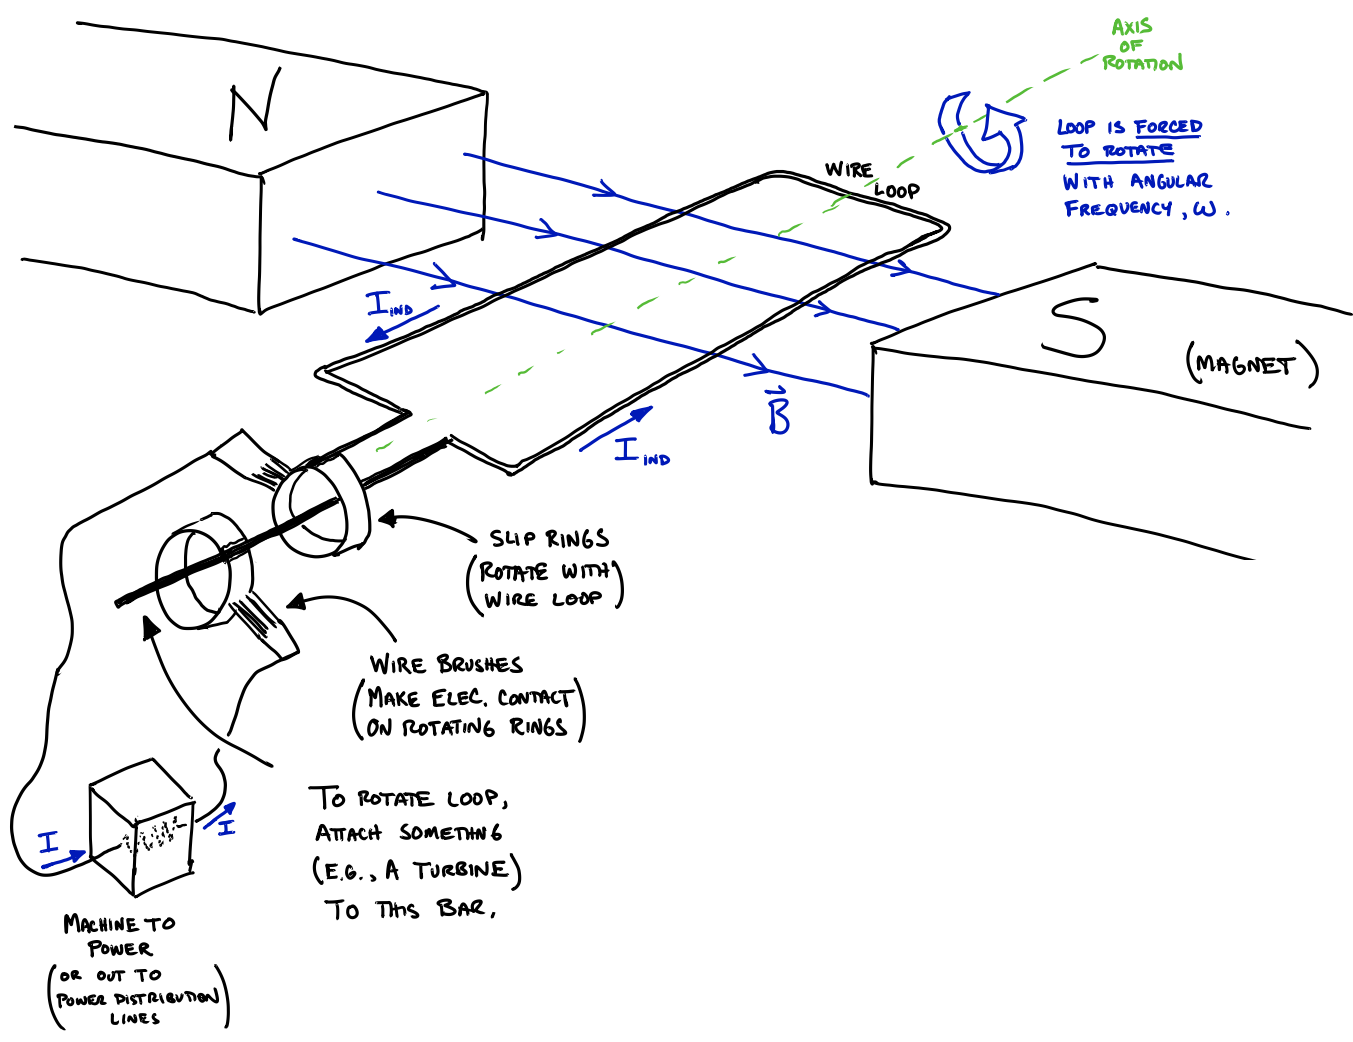 N
AXIS
OF
ROTATION
LOOP IS FORCED
TO ROTATE
WITH ANGULAR
FREQUENCY, ω.
WIRE
LOOP
I IND
S
(MAGNET)
B
I IND
SLIP RINGS
(ROTATE WITH
WIRE LOOP)
WIRE BRUSHES
(MAKE ELEC. CONTACT
ON ROTATING RINGS)
TO ROTATE LOOP,
ATTACH SOMETHNG
(E.G., A TURBINE)
TO THIS BAR.
I
I
MACHINE TO
POWER
(OR OUT TO
POWER DISTRIBUTION
LINES)